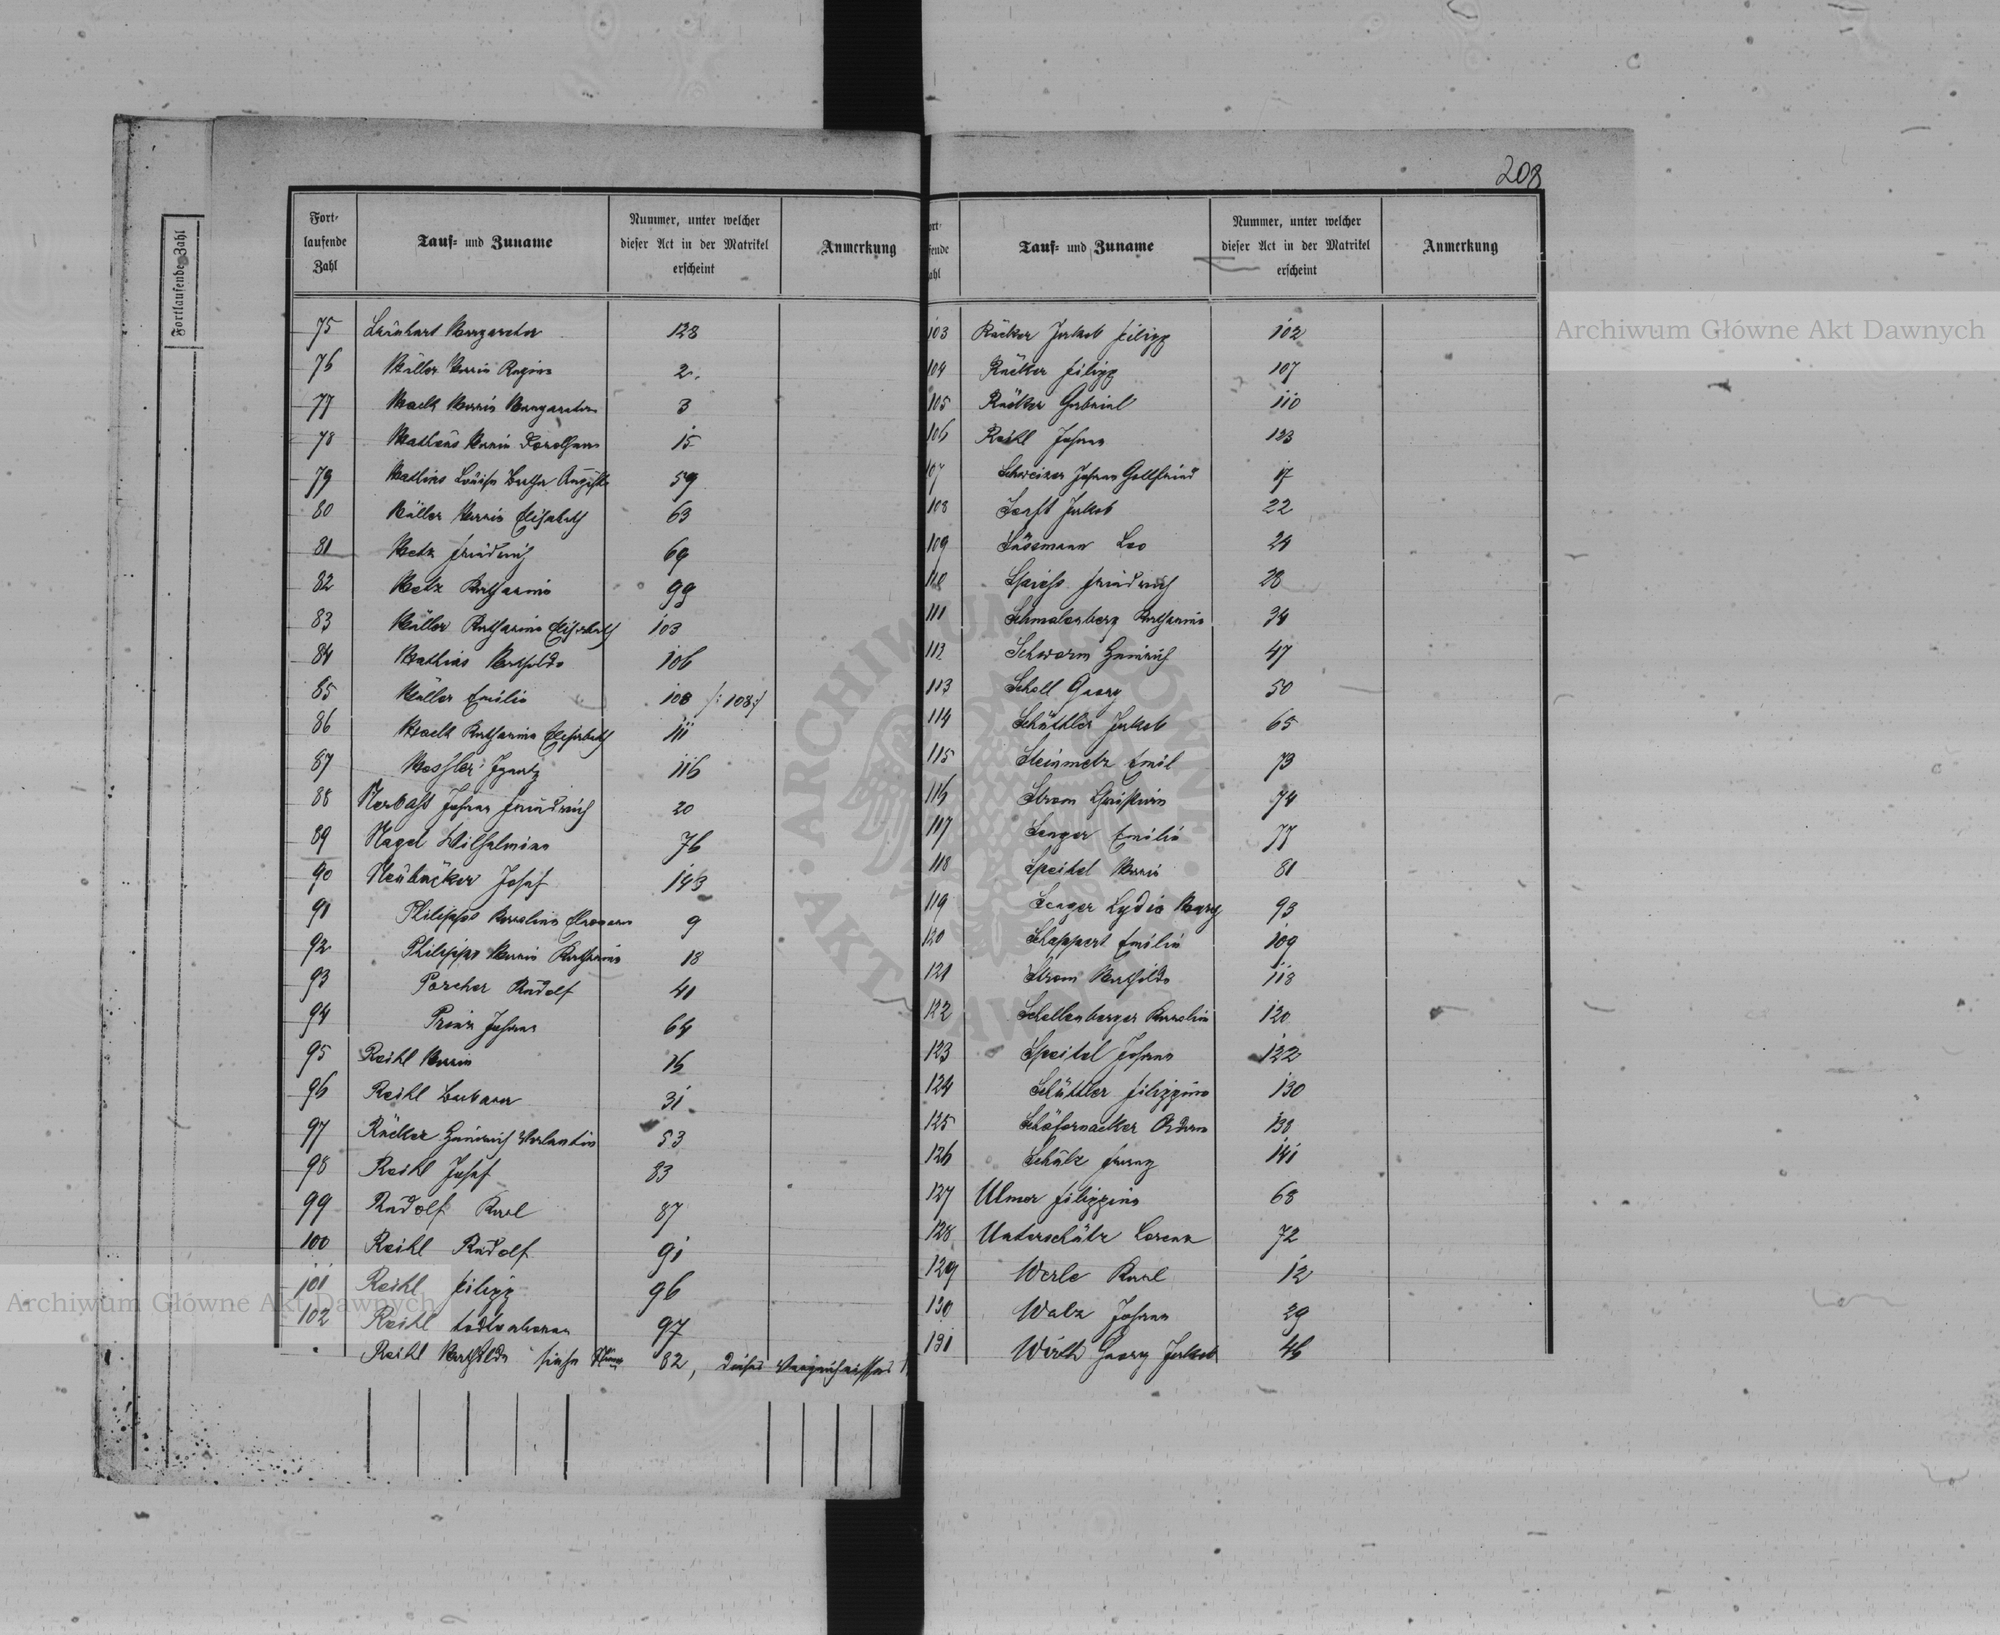 208
Fortlaufende Zahl
Fort-
laufende
Zahl
Tauf- und Zuname
Nummer, unter welcher
dieser Act in der Matrikel
erscheint
Anmerkung
75 Leinhart Margaretha 128
76 Müller Maria Regina 2.
77 Mack Maria Margaretha 3
78 Mathias Maria 15
79 Mathias Louise Bertha Auguste 59
80 Müller Maria Elisabeth 63
81 Metz Friedrich 69
82 Metz Katharina 99
83 Müller Katharina Elisabeth 103
84 Mathias Mathilde 106
85 Müller Emilie 108 /:108:/
86 Mack Katharina Elisabeth 111
87 Ignatz 116
88 Johann Friedrich 20
89 Nagel Wilhelmine 76
90 Neubäcker Josef 143
91 Philipps Karolina 9
92 Philipps Maria Katharina 18
93 Porcher Rudolf 41
94 Prinz Johann 64
95 Reihl Maria 16
96 Reihl Barbara 31
97 Räcker Heinrich Valentin 53
98 Reihl Josef 83
99 Rudolf Karl 87
100 Reihl Rudolf 91
101 Reihl Filipp 96
102 Reihl 97
Reihl Mathilde siehe 82, dieses Verzeichnisses
ort-
fende
ahl
Tauf- und Zuname
Nummer, unter welcher
dieser Act in der Matrikel
erscheint
Anmerkung
103 Räcker Jakob Filipp 102
104 Räcker Filipp 107
105 Räcker Gabriel 110
106 Reihl Johann 123
107 Schweizer Johann Gottfried 17
108 Senft Jakob 22
109 Süssmann Leo 24
110 Spiess Friedrich 28
111 Schmalenberg Katharina 34
112 Schwarm Heinrich 47
113 Scholl Georg 50
114 Schüttler Jakob 65
115 Steinmetz Emil 73
116 Strom Christina 74
117 Senger Emilie 77
118 Speitel Maria 81
119 Senger Lydia Marg 93
120 Schappert Emilie 109
121 Strom Mathilde 118
122 Schellenberger Karolina 120
123 Speitel Johann 122
124 Schüttler Filippine 130
125 Schäfernacker 138
126 Schütz Franz 141
127 Ulmer Filippine 68
128 Unterschütz Lorenz 72
129 Werle Karl 12
130 Walz Johann 29
131 Wirth Georg Jakob 46
Archiwum Główne Akt Dawnych
Archiwum Główne Akt Dawnych
ARCHIWUM GŁÓWNE AKT DAWNYCH